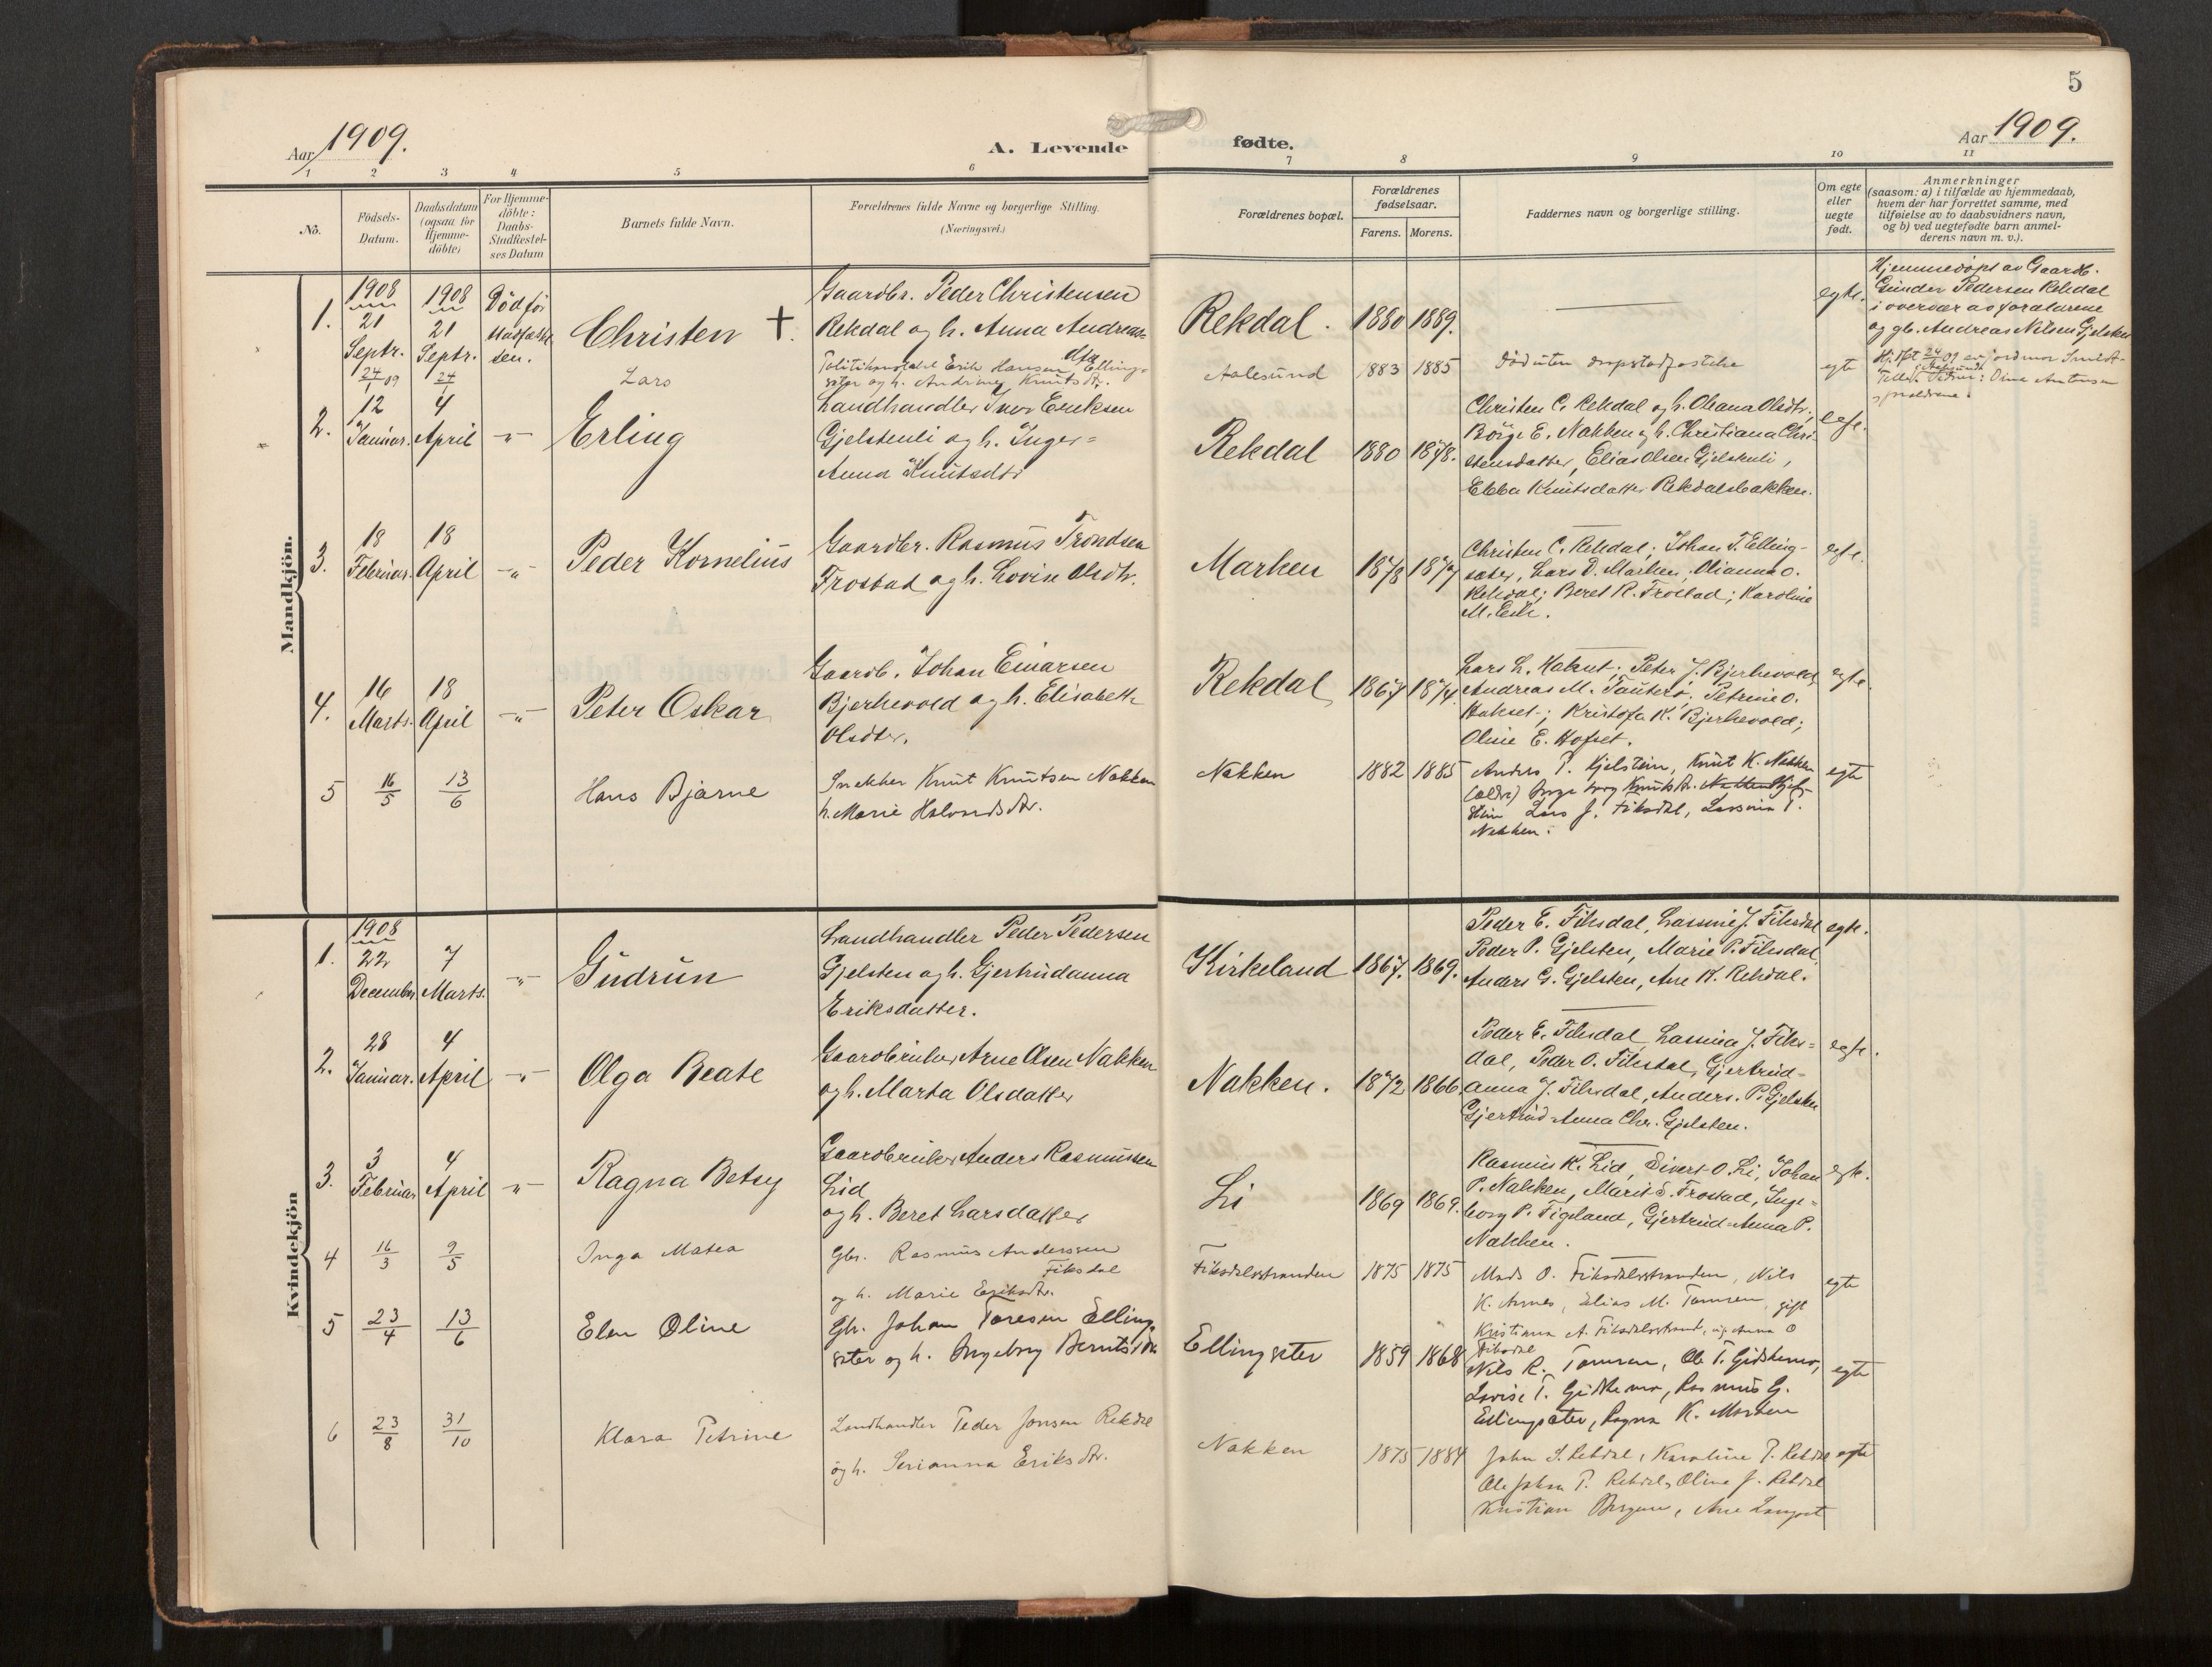 5
Aar 1909.
A. Levende
fødte.
Aar 1909.
1 2 3 4 5 6 7 8 9 10 11
No.
Födsels-
Datum.
Daabsdatum
(ogsaa for
Hjemme-
döbte)
For Hjemme-
döbte:
Daabs-
Stadfæstel-
ses Datum
Barnets fulde Navn.
Forældrenes fulde Navne og borgerlige Stilling.
(Næringsvei.)
Forældrenes bopæl.
Forældrenes
fødselsaar.
Farens. Morens.
Faddernes navn og borgerlige stilling.
Om egte
eller
uegte
født.
Anmerkninger
(saasom: a) i tilfælde av hjemmedaab,
hvem der har forrettet samme, med
tilføielse av to daabsvidners navn,
og b) ved uegtefødte barn anmel-
derens navn m. v.).
Mandkjön.
1.
1908
21
Septr.
1908
21
Septr.
Död før
Stadfæstel
sen.
Christen +
Gaardbr. Peder Christensen
Rekdal og h. Anna Andreas-
dtr
Rekdal.
1880 1889.
egte.
Hjemmedöpt av Gaardb.
Gunder Pedersen Rekdal
i overvær av forældrene
og gb. Andreas Nilsen Gjelsten
24/1 09
24/1
Lars
Politikonstabel Erik Hansen Elling-
seter og h. Andrine Knutsdtr.
Aalesund
1883 1885
Död uten daapstadfæstelse
egte
2.
12
Januar.
4
April
-"-
Erling
Landhandler Iver Eriksen
Gjelstenli og h. Inger=
Anna Knutsdtr
Rekdal
1880 1878.
Christen C. Rekdal og h. Oliana Olsdtr.,
Börge E. Nakken og h. Christiana Chri-
stensdatter, Elias Olsen Gjelstenli,
Ebba Knutsdatter Rekdalsbakken.
egte.
3.
18
Februar.
18
April
-"-
Peder Kornelius
Gaardbr. Rasmus Trondsen
Frostad og h. Lovise Olsdtr.
Marken
1878 1877
Christen C. Rekdal; Johan T. Elling-
sæter, Lars D. Marken, Olianna O.
Rekdal; Beret R. Frostad; Karoline
M.
egte.
4.
16
Marts.
18
April
-"-
Peter Oskar
Gaardb. Johan Einarsen
Bjerkevold og h. Elisabeth
Olsdtr.
Rekdal
1867 1874.
Lars L. Hakset; Peter J. Bjerkevold,
Andreas M. Tauterö; Petrine O.
Hakset; Kristofa K. Bjerkevold;
Oline E. Hofset.
egte.
5
16/5
13/6
Hans Bjarne
Snekker Knut Knutsen Nakken
h. Marie Halvardsdtr.
Nakken
1882 1885
Anders P. Gjelstein, Knut K. Nakken
(ældre) Ingeborg Knutsdtr. Nakken Gjel-
stein Lars J. Fiksdal, Lassina P.
Nakken.
egte
Kvindekjön
1.
1908
22
December
7
Marts.
-"-
Gudrun
Landhandler Peder Pedersen
Gjelsten og h. Gjertrudanna
Eriksdatter.
Kirkeland
1867. 1869.
Peder E. Fiksdal, Lassine J. Fiksdal
Peder P. Gjelsten, Marie P. Fiksdal,
Anders G. Gjelsten, Ane K. Rekdal.
egte.
2.
28
Januar.
4
April
-"-
Olga Beate
Gaardbruker Arne Olsen Nakken
og h. Marta Olsdatter
Nakken.
1872 1866.
Peder E. Fiksdal, Lassina J. Fiks=
dal, Peder O. Fiksdal, Gjertrud-
Anna J. Fiksdal, Anders. P. Gjelsten
Gjertrud-Anna Chr. Gjelsten.
egte.
3.
3
Februar
4
April
-"-
Ragna Betsy
Gaardbruker Anders Rasmussen
Lid
og h. Beret Larsdatter
Li
1869 1869.
Rasmus K. Lid, Sivert O. Li, Johan
P. Nakken, Marit S. Frostad, Inge-
borg P. Tigeland, Gjertrud-Anna P.
Nakken.
egte.
4
16/3
9/5
Inga Matea
Gbr. Rasmus Anderssen
Fiksdal
og h. Marie Eriksdtr.
Fiksdalsstranden
1875 1875
Mads O. Fiksdalsstranden, Nils
K. Aanes, Elias M. Tomren, gift
Kristiana A. Fiksdalsstrand, Anna O
Fiksdal
egte
5
23/4
13/6
Elen Oline
Gbr. Johan Toresen Elling-
sæter og h. Ingeborg Berntsdtr
Ellingseter
1859 1868
Nils R. Tomren, Ole T. Gidskemo,
Lovise T. Gidskemo, Rasmus G.
Ellingsæter, Ragna K. Marken
egte
6
23/8
31/10
Klara Petrine
Landhandler Peder Jonsen Rekdal
og h. Serianna Eriksdtr.
Nakken
1875 1884
John S. Rekdal, Karoline P. Rekdal
Ole Johan P. Rekdal, Oline J. Rekdal
Kristian Bergum, Ane
egte